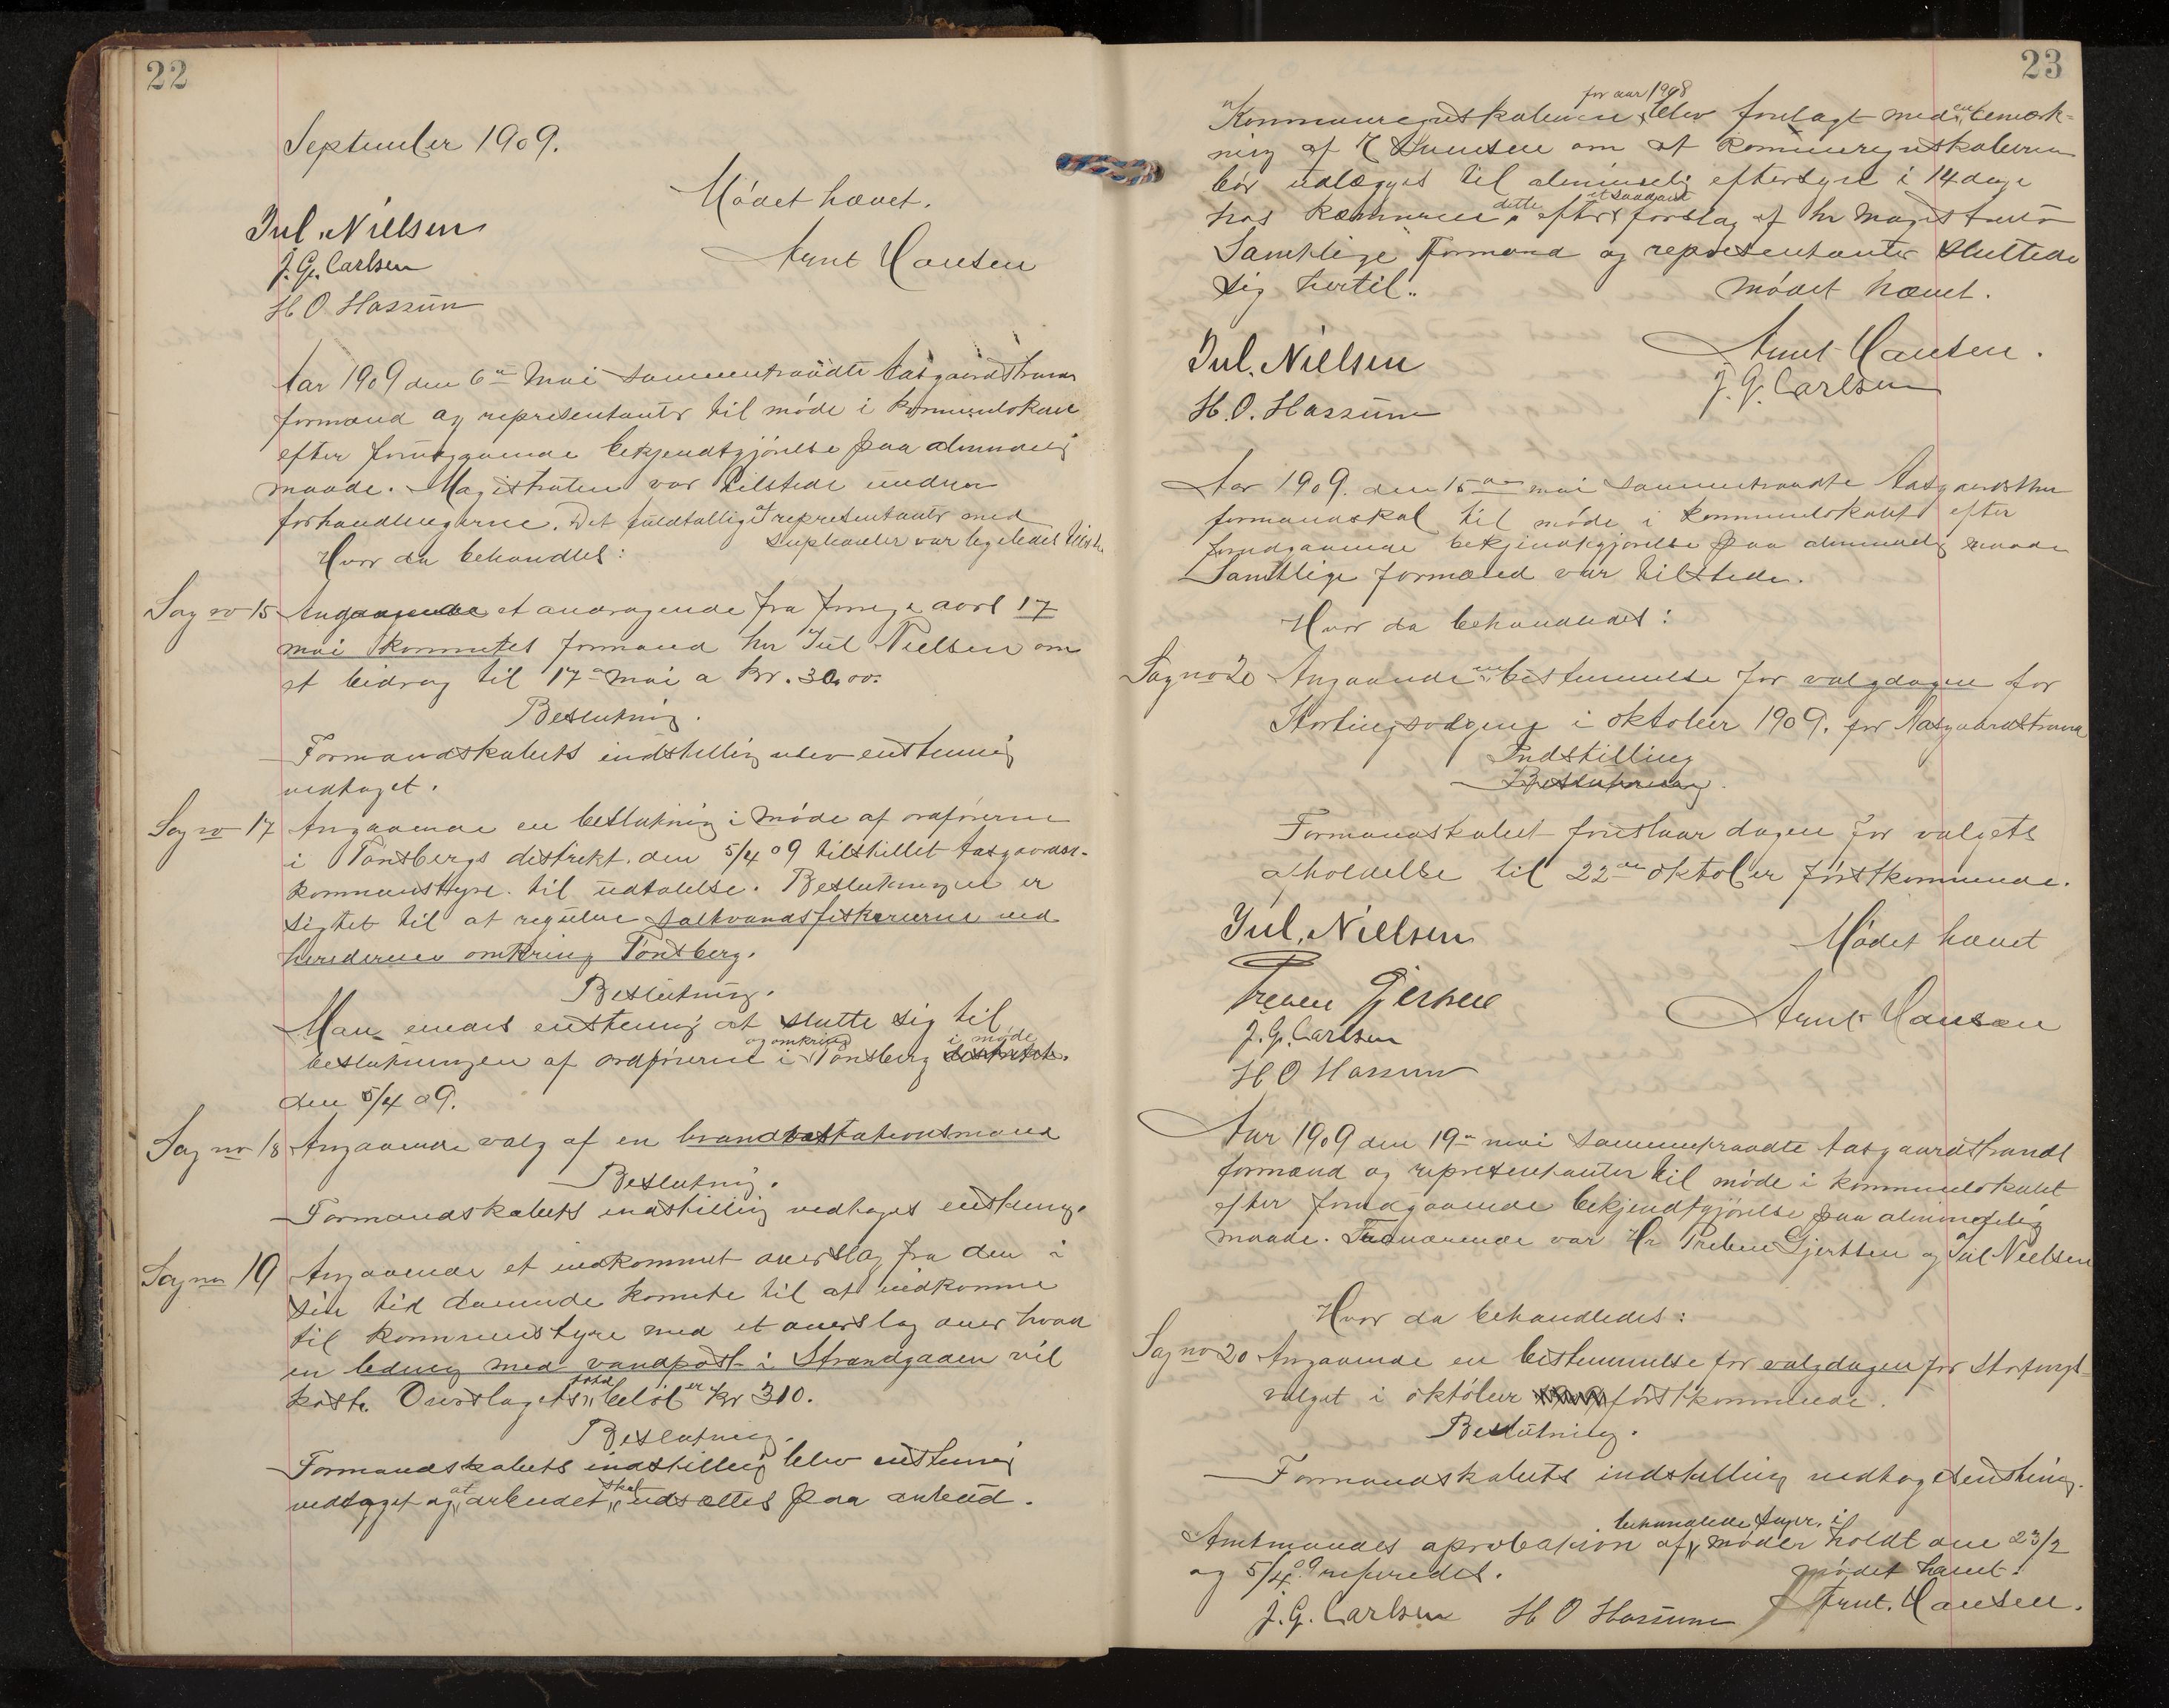 22
September 1909.
Mødet hævet.
Jul. Nielsen
Arnt Hansen
J. G. Carlsen
H O Hassum
Aar 1909 den 6te Mai sammentraadte Aasgaardstrands
formænd og representanter til møde i kommunelokalet
efter forudgaaende bekjendtgjørelse paa almindelig
maade. Magistraten var tilstede under
forhandlingerne. Det fuldtallige af representanter med
Supleanter var ligeledes tilstede
Hvor da behandles:
Sag no 15 Angaaende et andragende fra forrige aars 17
mai komites formand hr Jul Nielsen om
et bidrag til 17de mai a kr. 30.00.
Beslutning.
Formandskabets indstilling blev enstemmig
vedtaget.
Sag no 17 Angaaende en beslutning i møde af ordførerne
i Tønsbergs distrikt. den 5/4 09 tilstillet Aasgaardst.
kommunstyre til udtalelse. Beslutningen er
sigtet til at regulere saltvandsfiskerierne ved
herederne omkring Tønsberg.
Beslutning.
Man enedes enstemmig at slutte sig til
beslutningen af ordførerne i og omkring Tønsberg distrikt. i møde
den 5/4 09.
Sag no 18 Angaaende valg af en brandtakstationsmand
Beslutning.
Formandskabets indstilling vedtages enstemmig.
Sag no 19 Angaaende et indkommet overslag fra den i
sin tid dannede komite til at indkomme
til kommunestyre med et overslag over hvad
en ledning med vandpost i Strandgaden vil
koste. Overslagets total beløb er kr 310.
Beslutning.
Formandskabets indstilling blev enstemmig
vedtaget og at arbeidet skal udsættes paa anbud.
23
Kommuneregnskaberne for aar 1908 blev forelagt med en bemærk-
ning af om at kommuneregnskaberne
bør udlægges til almindelig eftersyn i 14 dage
hos kæmneren dette efter et saadant forslag af hr Magistraten
Samtlige Formænd og representanter sluttede
sig hertil.. mødet hævet.
Arnt Hansen.
Jul. Nielsen
J. G. Carlsen
H. O. Hassum
Aar 1909. den 15de mai sammentraadte Aasgaardstrands
formandskab til møde i kommunelokalet efter
forudgaaende bekjendtgjørelse paa almindelig maade
Samtlige formænd var tilstede.
Hvor da behandledes:
Sag no 20 Angaaende en bestemmelse for valgdagen for
Stortingsvalgene i oktober 1909. for Aasgaardstrand
Indstilling
Beslutning.
Formandskabet foreslaar dagen for valgets
afholdelse til 22de oktober førstkommende.
Jul. Nielsen
Mødet hævet
Preben Gjertsen
Arnt Hansen
J. G. Carlsen
H O Hassum
Aar 1909 den 19de mai sammentraadte Aasgaardstrands
formænd og representanter til møde i kommunelokalet
efter forudgaaende bekjendtgjørelse paa almindelig
maade. Fraværende var Hr Preben Gjertsen og Jul Nielsen
Hvor da behandledes:
Sag no 20 Angaaende en bestemmelse for valgdagen for Stortings-
valget i oktober førstkommende.
Beslutning.
Formandskabets indstilling vedtages enstemmig.
Amtmandes aprobation af behandlede sager i møder holdt den 23/2
og 5/4 09 refereredes. mødet hævet.
J. G. Carlsen H O Hassum Arnt. Hansen.